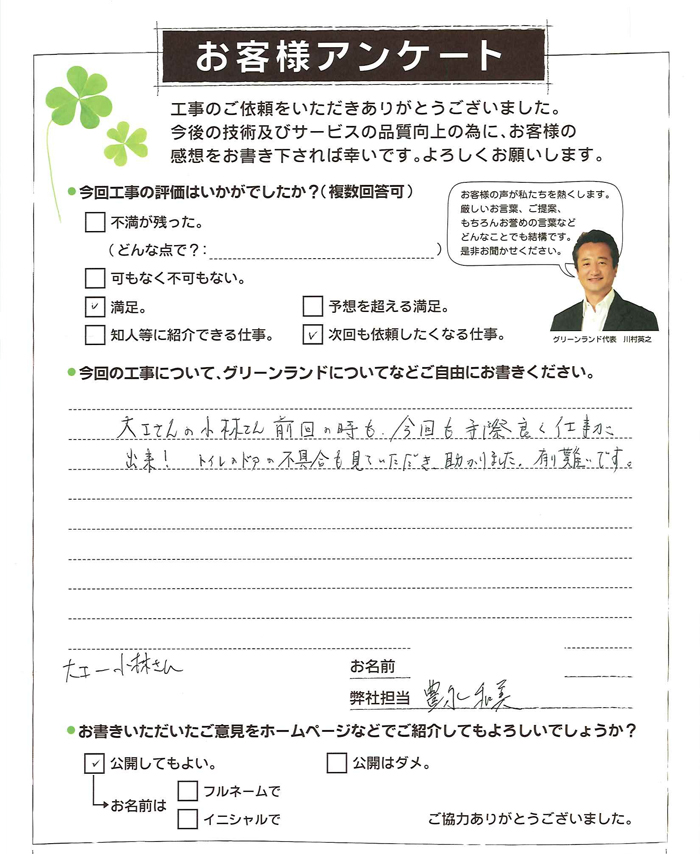 お客様アンケート
工事のご依頼をいただきありがとうございました。
今後の技術及びサービスの品質向上の為に、お客様の
感想をお書き下されば幸いです。よろしくお願いします。
今回工事の評価はいかがでしたか?(複数回答可)
お客様の声が私たちを熱くします。
厳しいお言葉、ご提案、
もちろんお誉めの言葉など
どんなことでも結構です。
是非お聞かせください。
不満が残った。
(どんな点で?: )
可もなく不可もない。
満足。 予想を超える満足。
知人等に紹介できる仕事。 次回も依頼したくなる仕事。
グリーンランド代表 川村英之
今回の工事について、グリーンランドについてなどご自由にお書きください。
大工さんの小林さん前回の時も、今回も手際良く仕事が
出来! トイレのドアの不具合も見ていただき、助かりました。有難いです。
大工ー小林さん
お名前
弊社担当 豊永 和美
お書きいただいたご意見をホームページなどでご紹介してもよろしいでしょうか?
公開してもよい。 公開はダメ。
お名前は
フルネームで
イニシャルで
ご協力ありがとうございました。